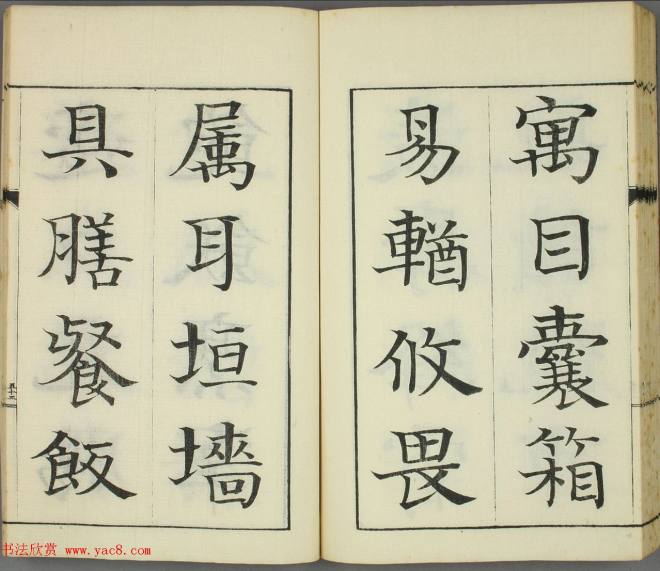 寓目囊箱
易輶攸畏
属耳垣墻
具膳飡飯
五十三
书法欣赏 www.yac8.com